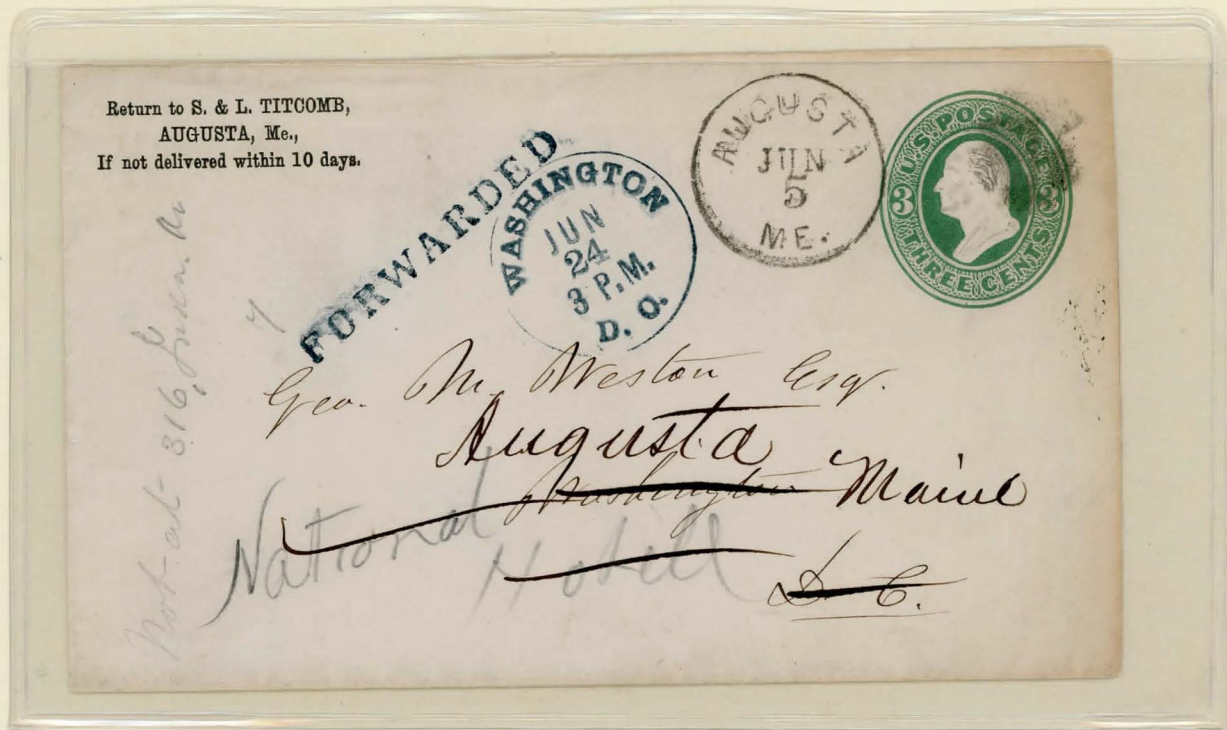 Return to S. & L. TITCOMB,
AUGUSTA, Me.,
If not delivered within 10 days.
FORWARDED
WASHINGTON
JUN
24
3 P.M.
D. C.
AUGUSTA
JUN
5
ME.
U.S. POSTAGE
3 3
THREE CENTS
7
Geo. M. Weston Esq.
Augusta
Washington Maine
National
Hotell
D. C.
Not at 316